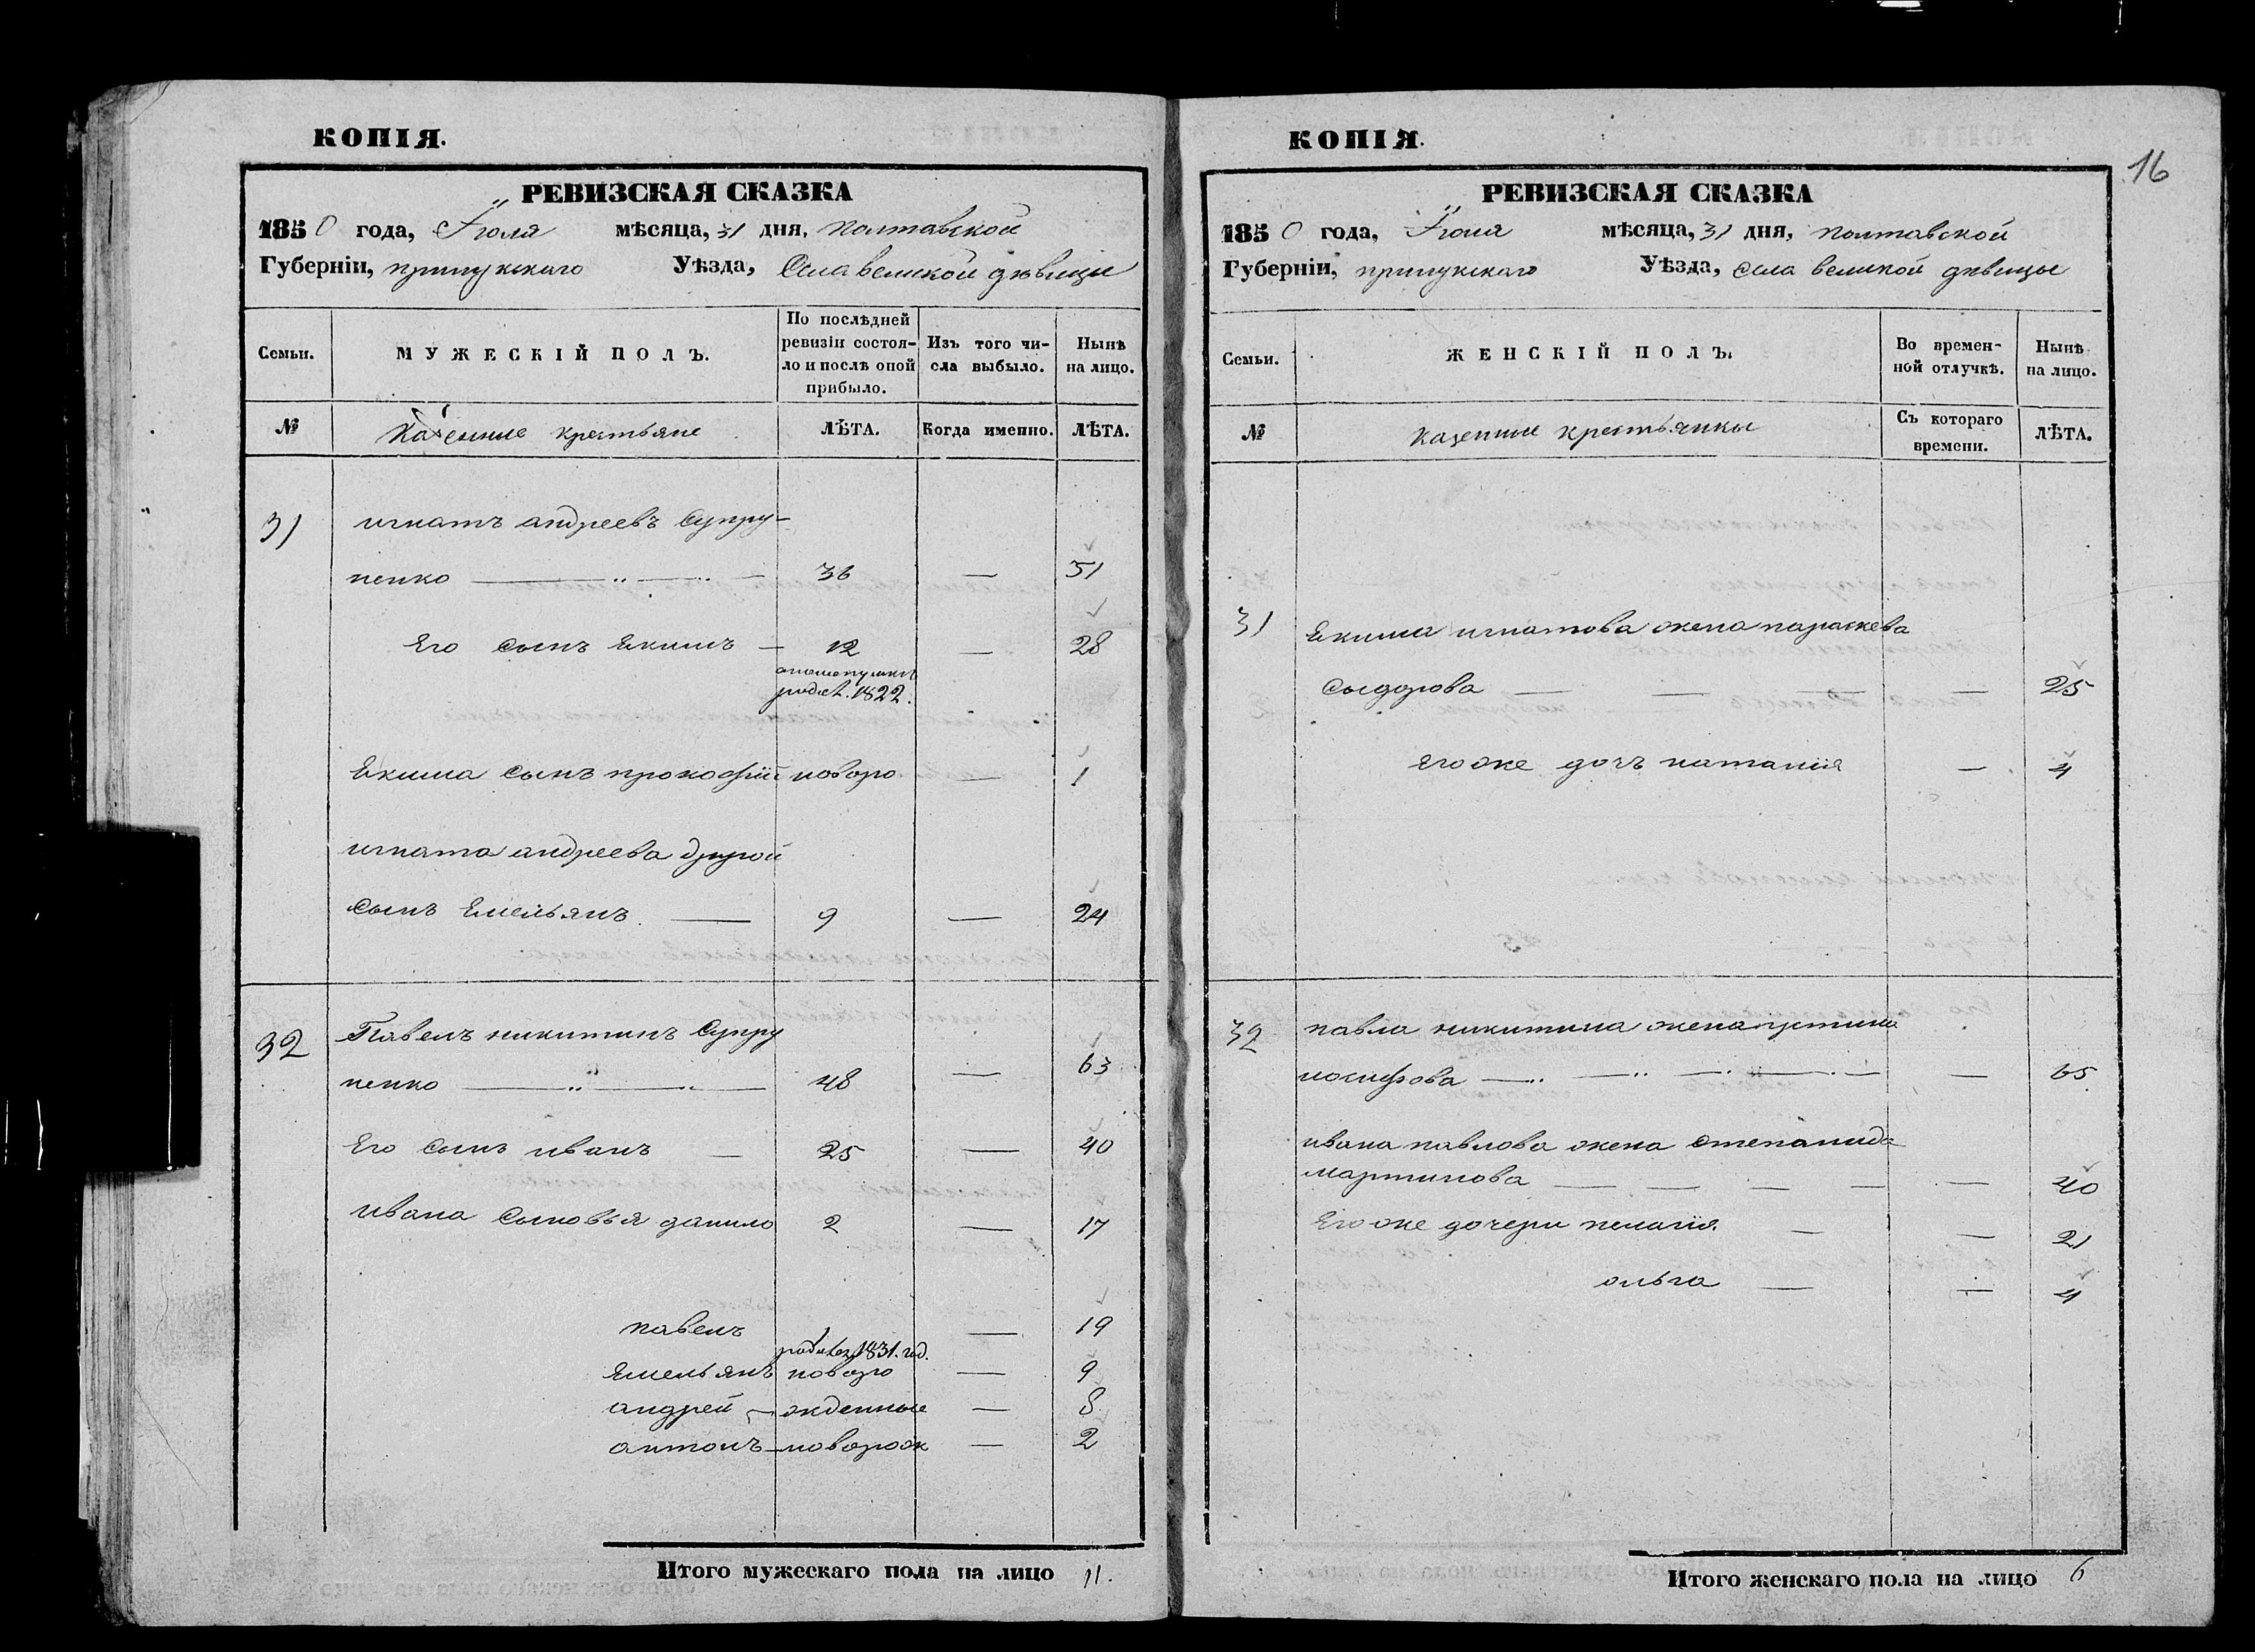 КОПІЯ.
РЕВИЗСКАЯ СКАЗКА
1850 года, Іюля мѣсяца, 31 дня, полтавской
Губерніи, прилукскаго Уѣзда, Села великой дѣвицы
Семьи.
МУЖЕСКІЙ ПОЛЪ.
По послѣдней ревизіи состояло и послѣ оной прибыло.
Изъ того числа выбыло.
Нынѣ на лицо.
№
Казенные крестьяне
ЛѢТА.
Когда именно.
ЛѢТА.
31 игнатъ андреевъ Супру-
ненко — 36 — 51
Его сынъ Екимъ — 12 — 28
родил. 1822.
Екима сынъ прокофій новоро — 1
игната андреева другой
сынъ Емельянъ — 9 — 24
32 Павелъ никитинъ Супру
ненко — 48 — 63
Его сынъ иванъ — 25 — 40
ивана сыновья данило 2 — 17
павелъ — 19
1831. год.
Емельянъ новоро — 9
андрей — жденные — 8
антонъ — поворож — 2
Итого мужескаго пола на лицо 11.
КОПІЯ.
16
РЕВИЗСКАЯ СКАЗКА
1850 года, Іюля мѣсяца, 31 дня, полтавской
Губерніи, прилукскаго Уѣзда, села великой дѣвицы
Семьи.
ЖЕНСКІЙ ПОЛЪ.
Во временной отлучкѣ.
Нынѣ на лицо.
№
казенные крестьянки
Съ котораго времени.
ЛѢТА.
31 Екима игнатова жена параскева
сыдорова — — 25
Его же дочь наталия — 4
32 павла никитина жена устина
иосифова — — 65
ивана павлова жена степанида
мартинова — — 40
Его же дочери пелагія — — 21
ольга — — 4
Итого женскаго пола на лицо 6